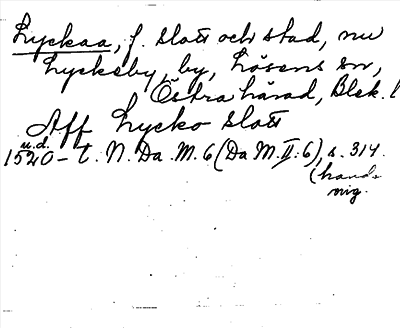 Lyckaa, f. slott och stad, nu
Lyckeby, by, Lösens sn,
Östra härad, Blek. l
Aff Lycko slott
u.d.
1520-t. N. Da. M. 6 (Da M. II:6), s. 314.
(hand-